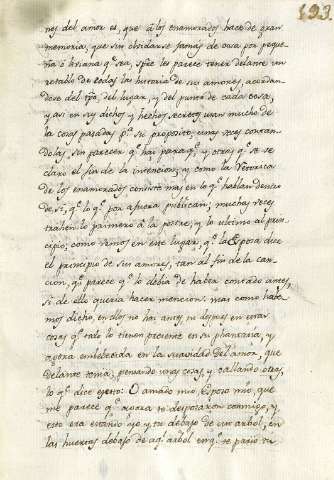 193
nes del amor es, que á los enamorados hace de gran
memoria, que sin olvidarse jamas de cosa por peque
ña ó liviana q.e sea, spre les parece tener delante un
retablo de todas las historia de sus amores, acordan
dose del tpõ, del lugar, y del punto de cada cosa;
y asi en sus dichos y hechos secretos usan mucho de
la cosas pasadas p.a su proposito; unas veces contan
dolas, sin parecer q.e hai paraq.e, y otras q.e se ve
claro el fin de la intencion; y como la Retorica
de los enamorados consiste mas en lo q.e hablan dentro
de sí, q.e lo q.e por afuera publican, muchas veces
trahen lo primero á la postre, y lo ultimo al prin
cipio; como vemos en este lugar, q.e la Esposa dice
el principio de sus amores, tan al fin de la can
cion, q.e parece q.e lo debia de haber contado antes,
si de ello queria hacer mencion. mas como habe
mos dicho, en ellos no hai antes, ni despues en estas
cosas q.e todo lo tienen preciente en su phantasia, y
agora embebecida en la suavidad del amor, que
delante toma, pensando unas cosas, y callando otras,
lo q.e dice esto: O amado mio, Esposo mio, que
me parece q.e agora te desposaron conmigo, y
este era estando yo y tu debajo de un arbol, en
las huertos debajo de aq.l arbol en q.e te pario tu